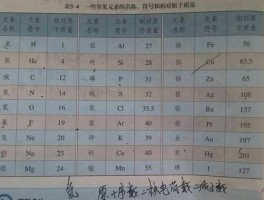 表3-4 一些常见元素的名称、符号和相对原子质量
元素名称 元素符号 相对原子质量 元素名称 元素符号 相对原子质量 元素名称 元素符号 相对原子质量
氢 H 1 铝 Al 27 铁 Fe 56
氦 He 4 硅 Si 28 铜 Cu 63.5
碳 C 12 磷 P 31 锌 Zn 65
氮 N 14 硫 S 32 银 Ag 108
氧 O 16 氯 Cl 35.5 钡 Ba 137
氟 F 19 氩 Ar 40 铂 Pt 195
氖 Ne 20 钾 K 39 金 Au 197
钠 Na 23 钙 Ca 40 汞 Hg 201
镁 Mg 24 锰 Mn 55 碘 I 127
原子序数=核电荷数=质子数